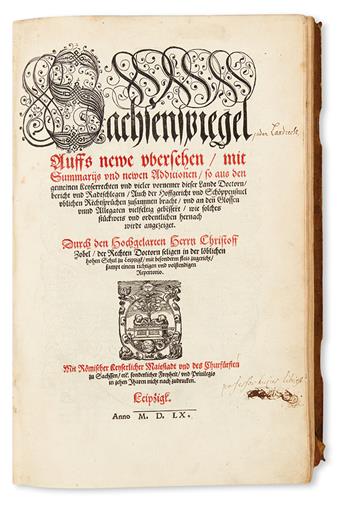 Sachssenspiegel
Auffs newe vbersehen / mit
Summarijs vnd newen Additionen / so aus den
gemeinen Keyserrechten vnd vieler vornemer dieser Lande Doctorn /
bericht vnd Radtschlegen / Auch der Hoffgericht vnd Schöppenstuel
vblichen Rechtsprüchen zusammen bracht / vnd an den Glossen
vnnd Allegaten vielfeltig gebessert / wie solches
stückweis vnd ordentlichen hernach
wirdt angezeiget.
Durch den Hochgelarten Herrn Christoff
Zobel / der Rechten Doctorn seligen in der löblichen
hohen Schul zu Leipzigk / mit besonderm fleis zugericht /
sampt einem richtigen vnd volstendigen
Repertorio.
Mit Römischer Keyserlicher Maiestadt vnd des Churfürsten
zu Sachssen / etc. sonderlicher Freyheit / vnd Priuilegio
in zehen Jharen nicht nach zudrucken.
Leipzigk.
Anno M. D. LX.